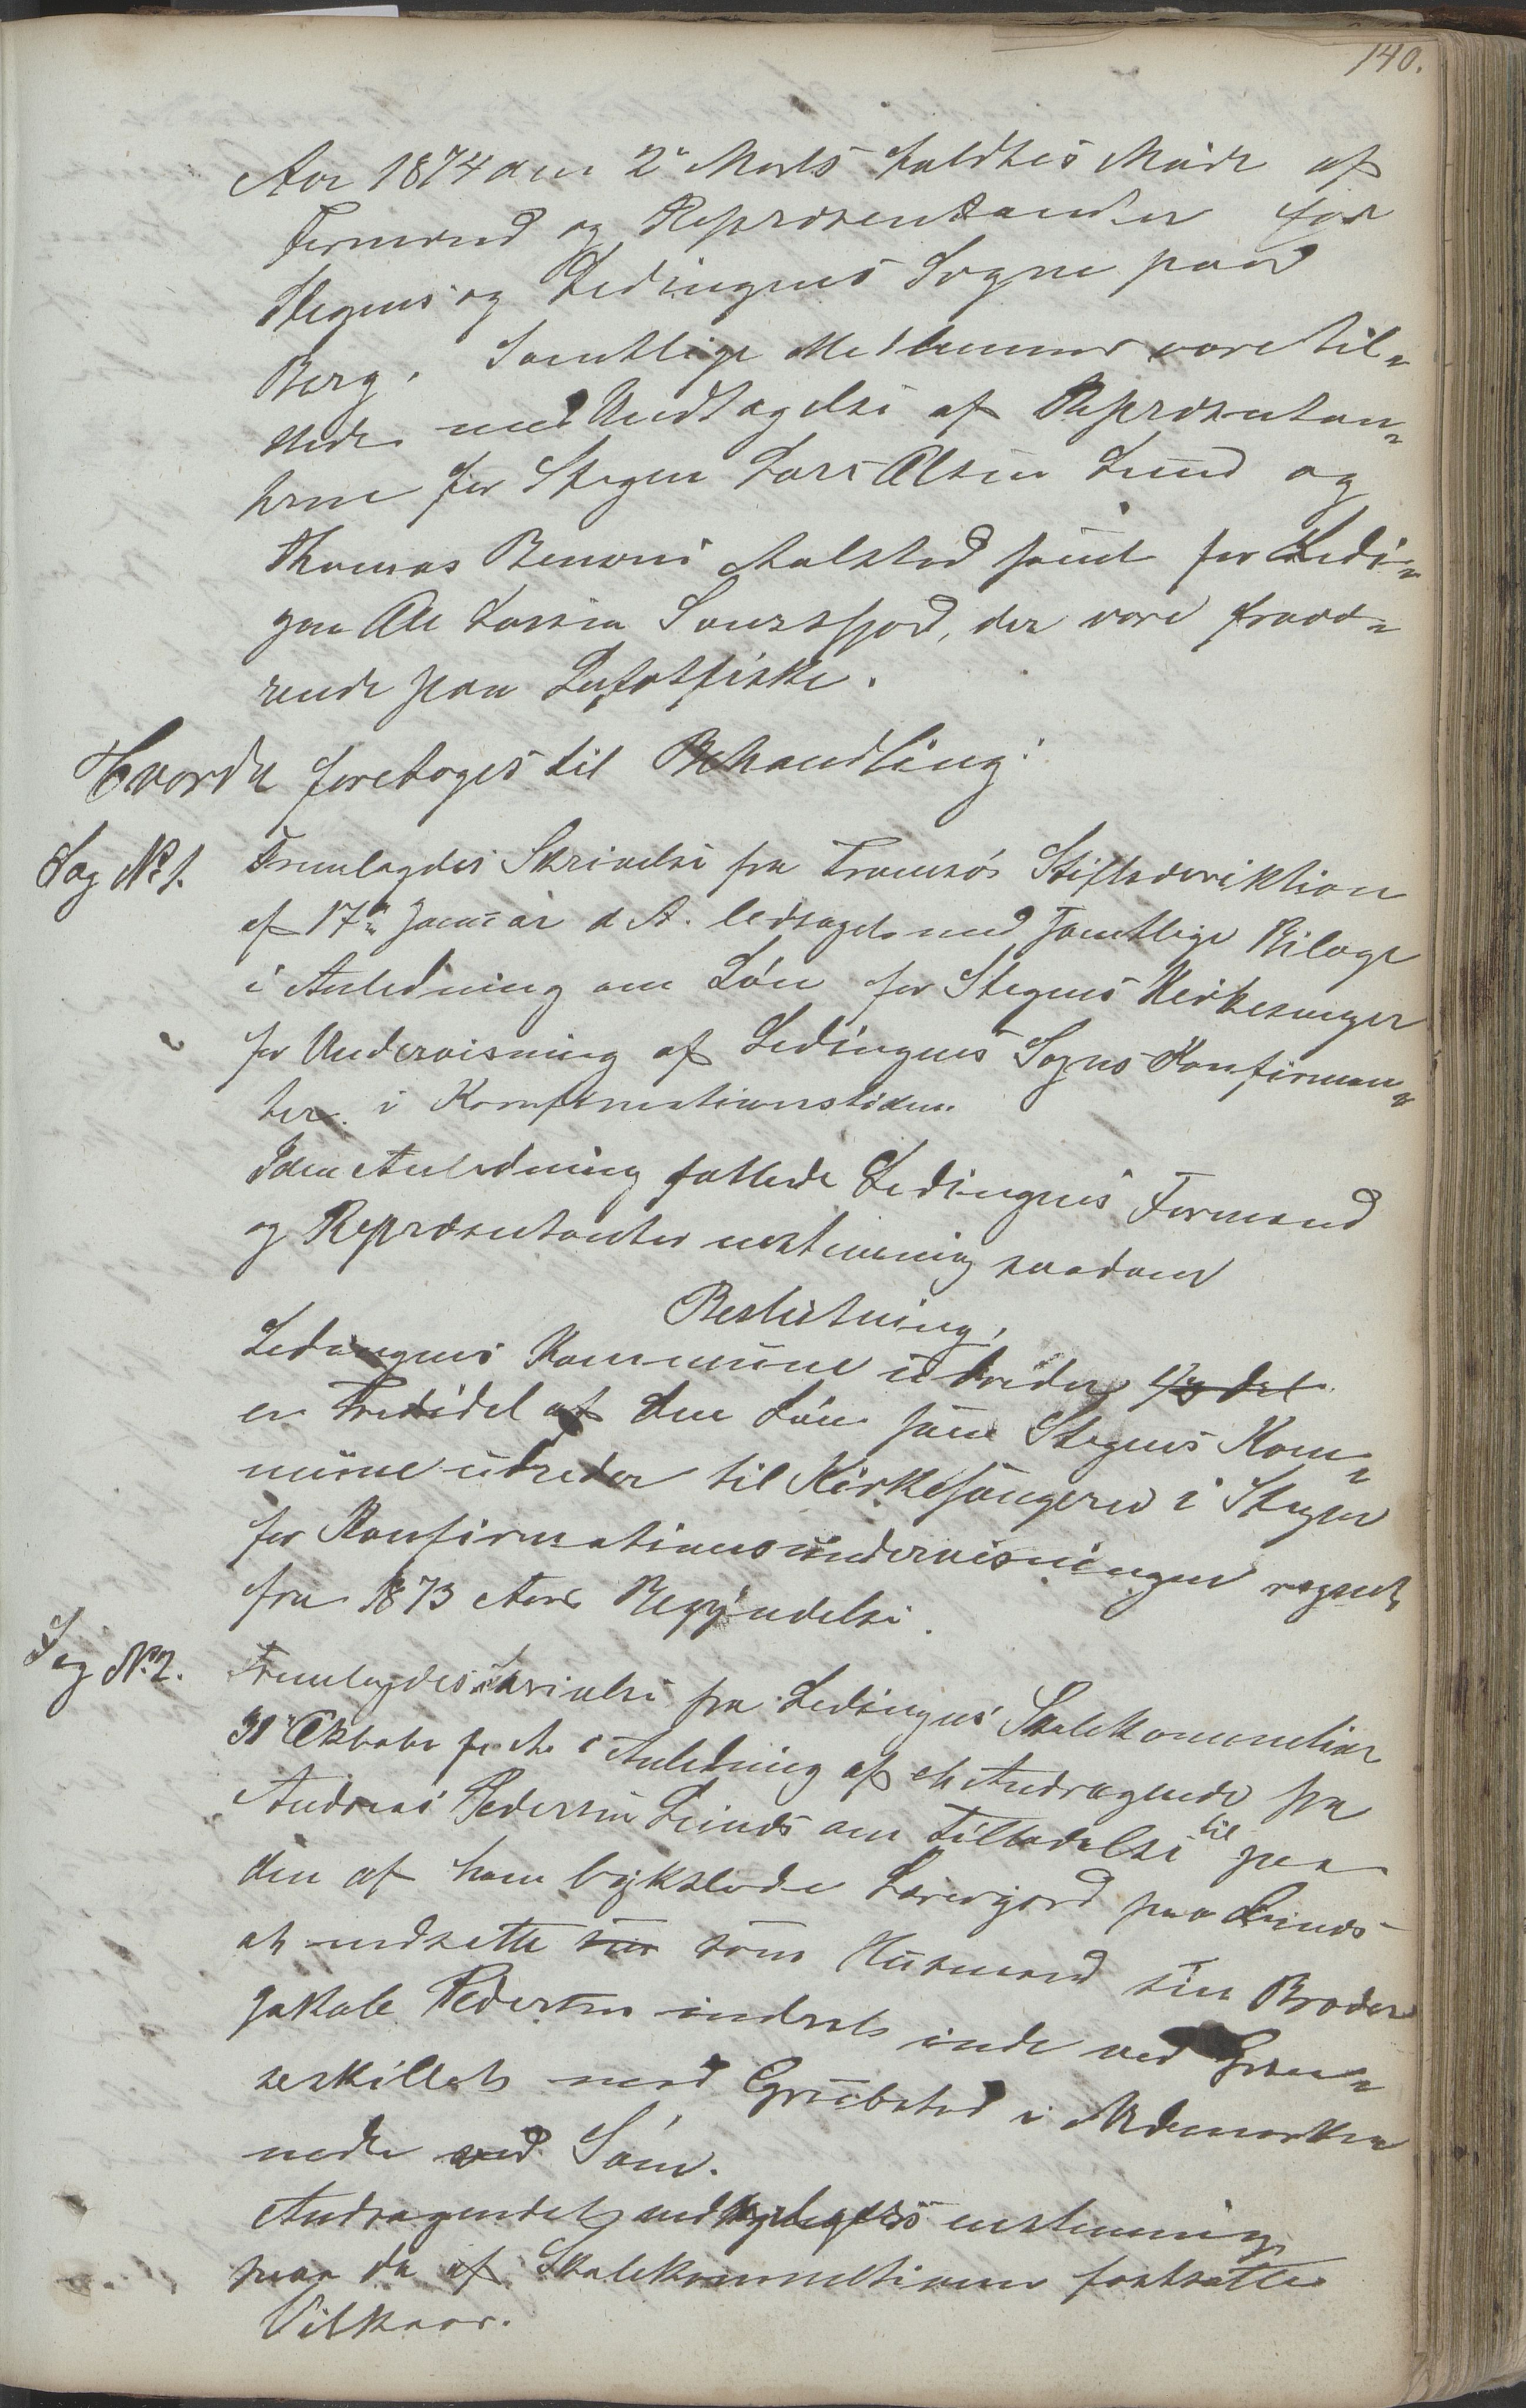 140.
Aar 1874 den 2e Marts holdtes Møde af
Formænd og Repræsentanter for
Stegens og Ledingens Sogne paa
Borg. Samtlige Medlemmer vare til-
stede med Undtagelse af Repræsentan-
terne for Stegen Lars Olsen Lund og
Thomas Benoni Aalstad samt for Ledin-
gen Ole Larsen Sauesfjord, der vare fravæ-
rende paa Lofotfiske.
Hvorda foretoges til Behandling:
Sag No 1. Fremlagdes Skrivelse fra Tromsø Stiftsdirektion
af 17de Januar d. A. ledsaget med samtlige Bilage
i Anledning om Løn for Stegens Kirkesanger
for Undervisning af Ledingens Sogns Konfirman-
ter i Konfirmationstiden.
I den Anledning fattede Ledingens Formænd
og Repræsentanter enstemmig saadan
Beslutning,
Ledingens Kommune udreder 1/3 del
en Tredidel af den Løn som Stegens Kom-
mune udreder til Kirkesangeren i Stegen
for Konfirmationsundervisningen regnet
fra 1873 Aars Begyndelse.
Sag No 2. Fremlagdes Skrivelse fra Ledingens Skolekommission
31 Oktober f. A. i Anledning af et Andragende fra
Andreas Pedersen Leines om Tilladelse til paa
den af ham bykslede Lærerjord paa Leines
at nedsætte sin som Husmand sin Broder
Jakob Pedersen indrets inde ved Græn-
seskillet med Grubstad i Udmarken
nede ved Søen.
Andragendet enstemmig
paa de af Skolekommissionen fastsatte
Vilkaar.